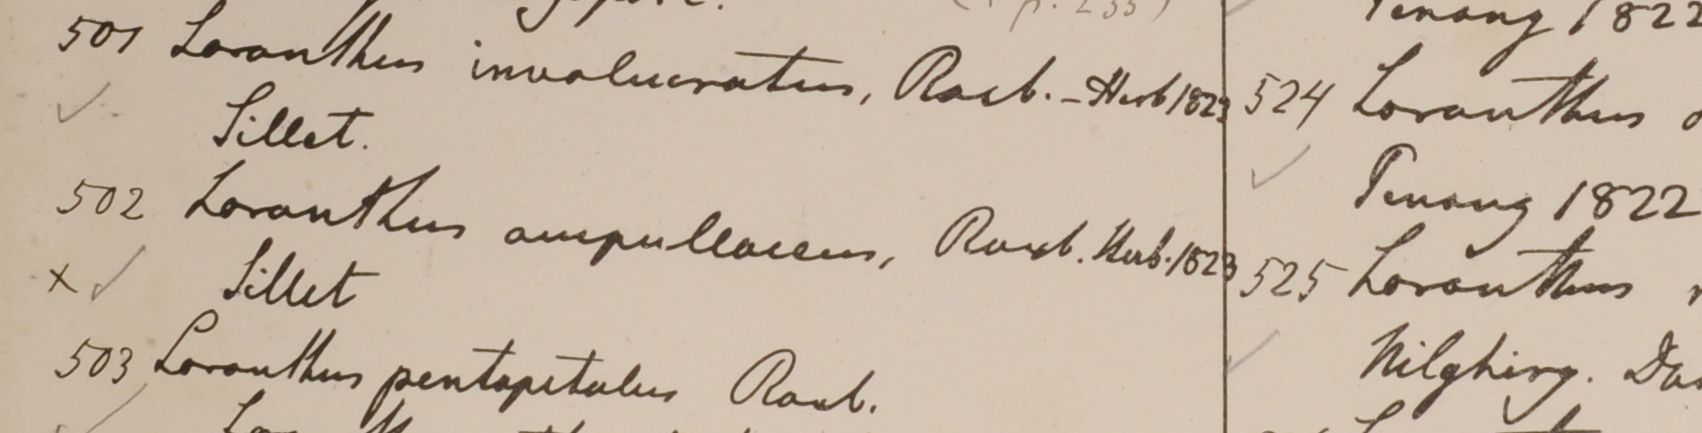 501 Loranthus involucratus, Roxb. - Herb 1823
Sillet.
502 Loranthus ampullaceus, Roxb. Herb. 1823
Sillet
503 Loranthus pentapetalus Roxb.
Penang 1822
524 Loranthus
Penang 1822
525 Loranthus
Nilghiry.